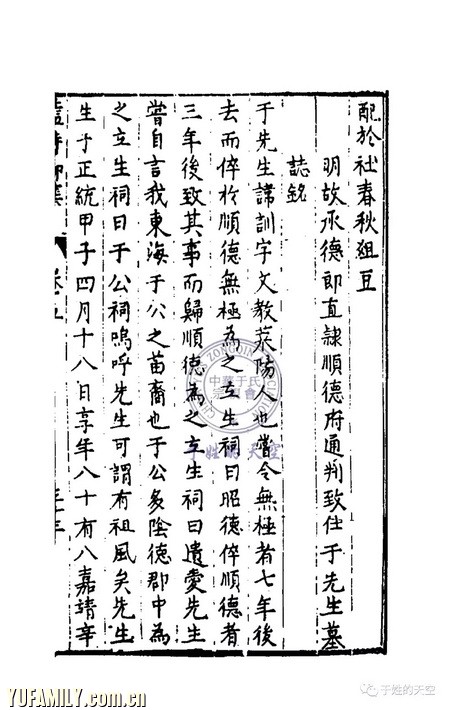 配於社春秋俎豆
明故承德郎直隸順德府通判致仕于先生墓
誌銘
于先生諱訓字文教萊陽人也嘗令無極者七年後
去而倅於順德無極為之立生祠曰昭德倅順德者
三年後致其事而歸順德為之立生祠曰遺愛先生
嘗自言我東海于公之苗裔也于公多陰德郡中為
之立生祠曰于公祠嗚呼先生可謂有祖風矣先生
生于正統甲子四月十八日享年八十有八嘉靖辛
中華于氏
于姓的天空
YUFAMILY.com.cn
于姓的天空